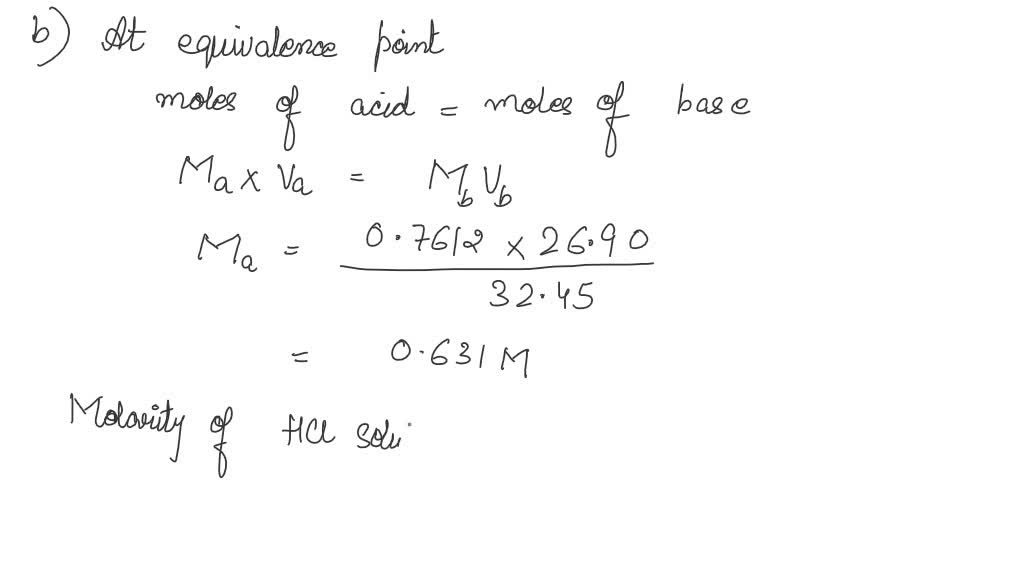 b) At equivalence point
moles of acid = moles of base
Ma x Va = MbVb
Ma = 0.7612 x 26.90
32.45
= 0.631 M
Molarity of HCl solu